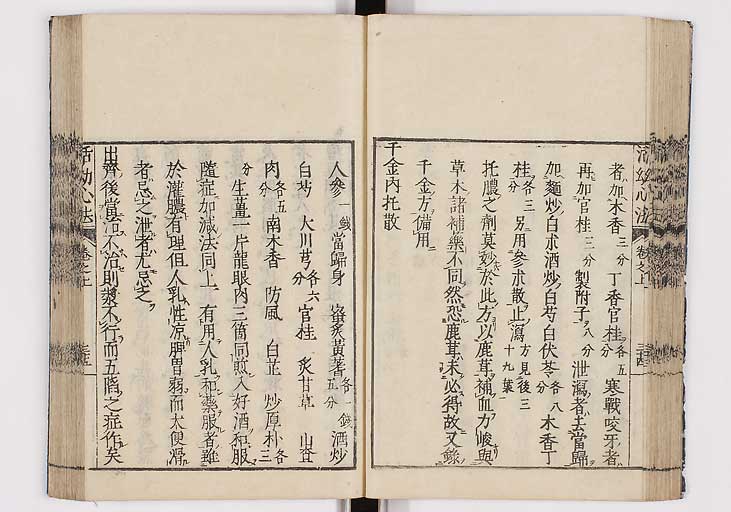 者加木香三分丁香官桂各五分寒戰咬牙者
再加官桂三分製附子八分泄瀉者去當歸
加麵炒白朮酒炒白芍白伏苓各八分木香丁
桂各三分另用參朮散止瀉方見後三十九葉
托膿之劑莫妙於此方以鹿茸補血力峻與
草木諸補藥不同然恐鹿茸未必得故又錄
千金方備用
千金內托散
活幼心法
卷之上
人參一錢當歸身 蜜炙黃蓍各一錢五分酒炒
白芍 大川芎各六分官桂 炙甘草 山査
肉各五分南木香 防風 白芷 炒厚朴各三
分生薑一片龍眼肉三箇同煎入好酒和服
隨症加減法同上 有用人乳和藥服者雖
於灌膿有理但人乳性凉脾胃弱而大便滑
者忌之泄者尤忌之
出齊後當活不治則漿不行而五陷之症作矣
活幼心法
卷之上